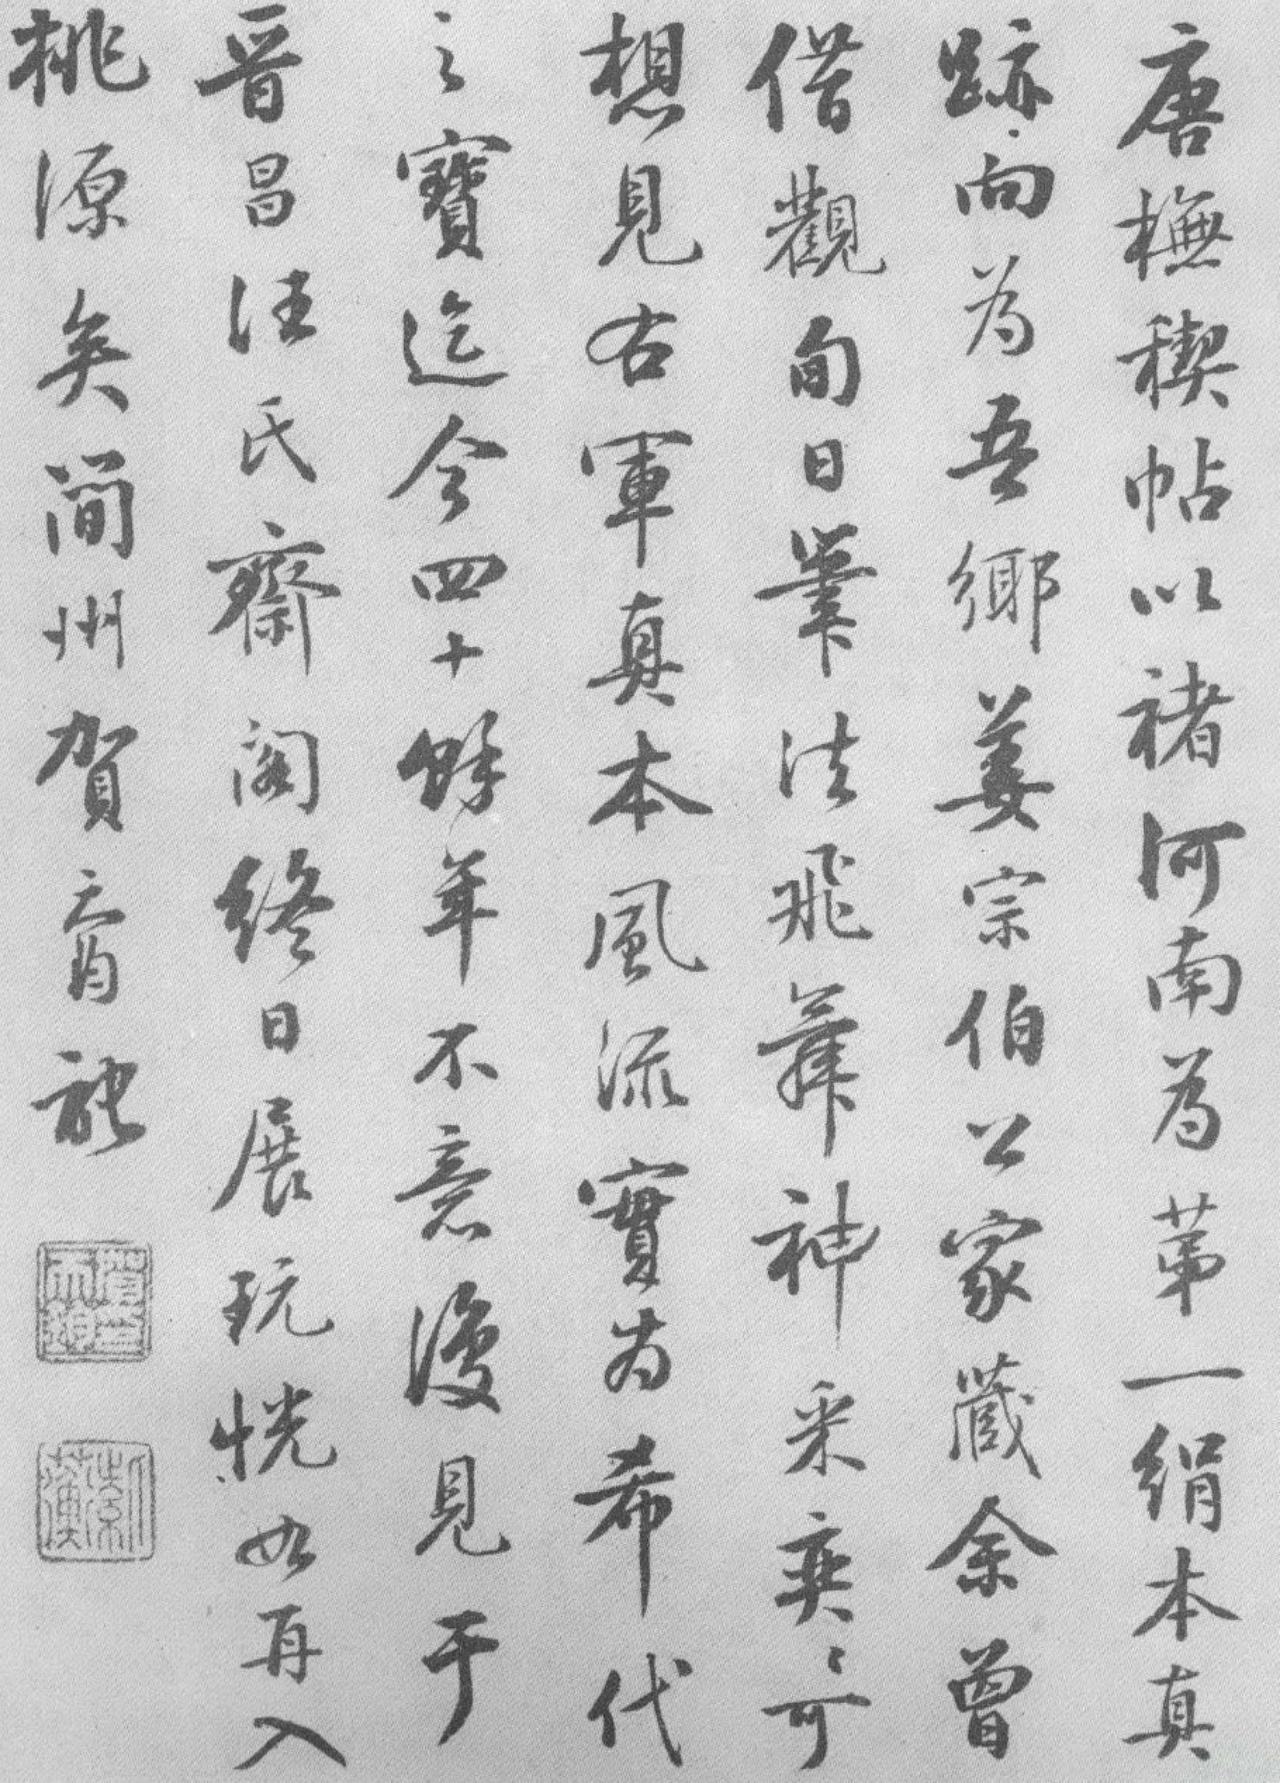 唐橅稧帖以褚河南為苐一絹本真
跡向為吾鄉姜宗伯公家藏余曾
借觀旬日筆法飛舞神采奕〻可
想見右軍真本風流實為希代
之寶迄今四十餘年不意復見于
晉昌汪氏齋阁終日展玩恍如再入
桃源矣简州賀天育記